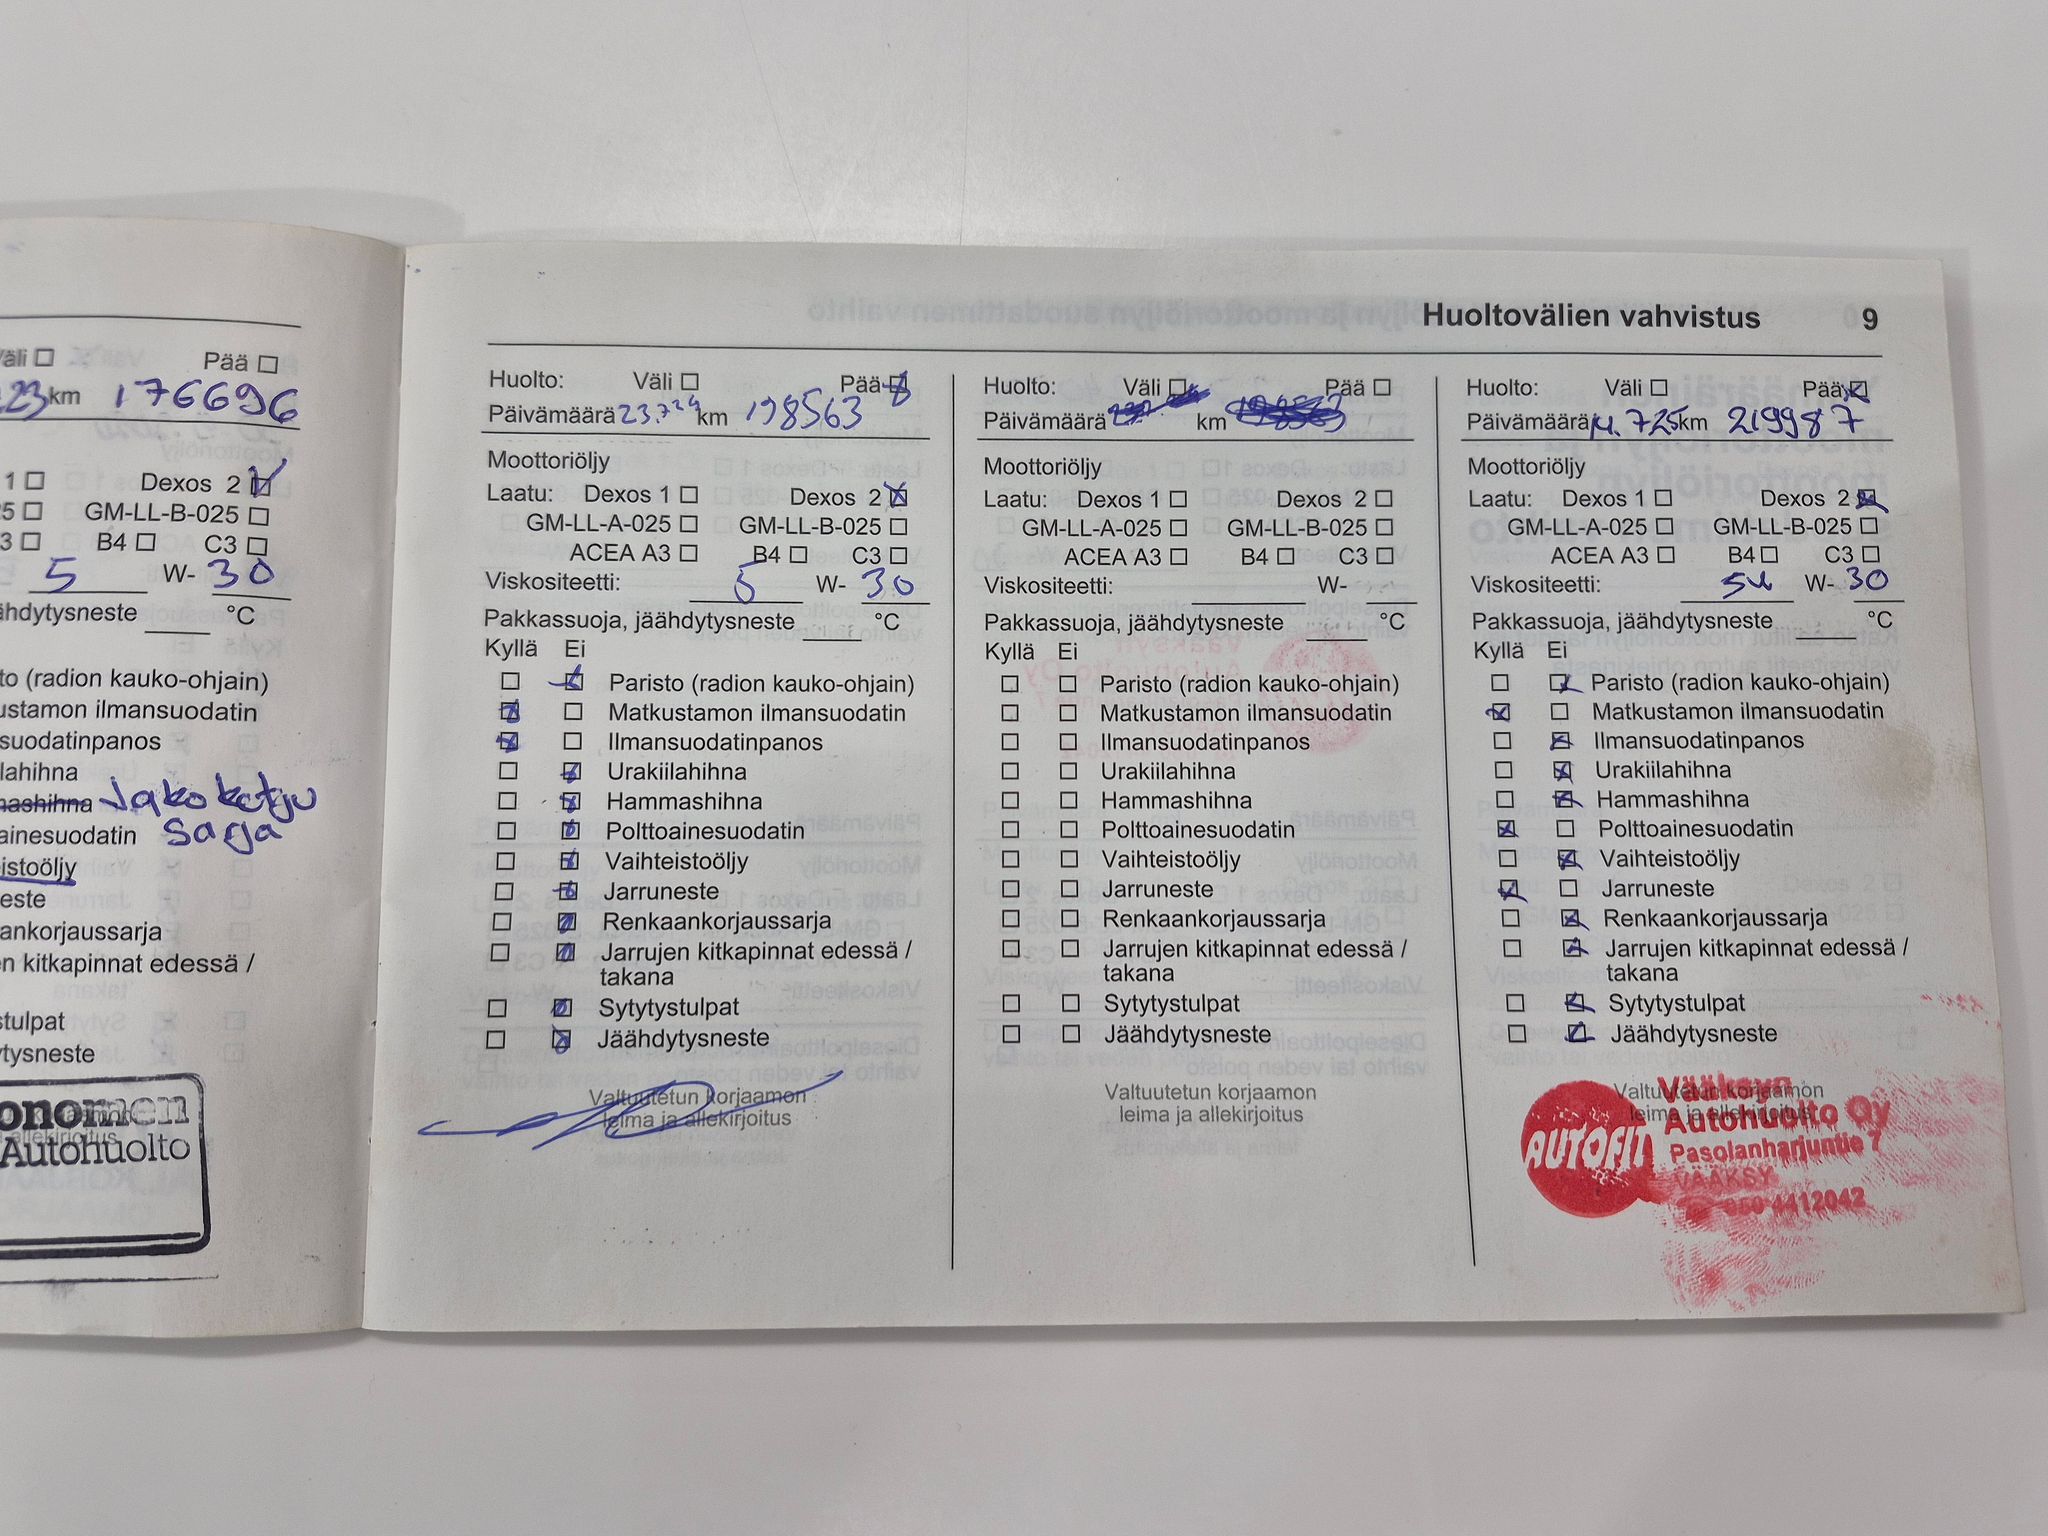 Väli ☐ Pää ☐
23 km 176696
1 ☐ Dexos 2 ☑
25 ☐ GM-LL-B-025 ☐
3 ☐ B4 ☐ C3 ☐
5 W- 30
°C
to (radion kauko-ohjain)
ilmansuodatin
suodatinpanos
lahihna
mashihna Jakoketju
sarja
ainesuodatin
istoöljy
este
ankorjaussarja
n kitkapinnat edessä /
stulpat
tysneste
onomen
Autohuolto
Huoltovälien vahvistus 9
Huolto: Väli ☐ Pää ☒
Päivämäärä 23.7.24 km 198563
Moottoriöljy
Laatu: Dexos 1 ☐ Dexos 2 ☒
GM-LL-A-025 ☐ GM-LL-B-025 ☐
ACEA A3 ☐ B4 ☐ C3 ☐
Viskositeetti: 5 W- 30
Pakkassuoja, jäähdytysneste °C
Kyllä Ei
☐ ☒ Paristo (radion kauko-ohjain)
☒ ☐ Matkustamon ilmansuodatin
☒ ☐ Ilmansuodatinpanos
☐ ☒ Urakiilahihna
☐ ☒ Hammashihna
☐ ☒ Polttoainesuodatin
☐ ☒ Vaihteistoöljy
☐ ☒ Jarruneste
☐ ☒ Renkaankorjaussarja
☐ ☒ Jarrujen kitkapinnat edessä /
takana
☐ ☒ Sytytystulpat
☐ ☒ Jäähdytysneste
Valtuutetun korjaamon
leima ja allekirjoitus
Huolto: Väli ☐ Pää ☐
Päivämäärä km
Moottoriöljy
Laatu: Dexos 1 ☐ Dexos 2 ☐
GM-LL-A-025 ☐ GM-LL-B-025 ☐
ACEA A3 ☐ B4 ☐ C3 ☐
Viskositeetti: W-
Pakkassuoja, jäähdytysneste °C
Kyllä Ei
☐ ☐ Paristo (radion kauko-ohjain)
☐ ☐ Matkustamon ilmansuodatin
☐ ☐ Ilmansuodatinpanos
☐ ☐ Urakiilahihna
☐ ☐ Hammashihna
☐ ☐ Polttoainesuodatin
☐ ☐ Vaihteistoöljy
☐ ☐ Jarruneste
☐ ☐ Renkaankorjaussarja
☐ ☐ Jarrujen kitkapinnat edessä /
takana
☐ ☐ Sytytystulpat
☐ ☐ Jäähdytysneste
Valtuutetun korjaamon
leima ja allekirjoitus
Huolto: Väli ☐ Pää ☒
Päivämäärä 725 km 219987
Moottoriöljy
Laatu: Dexos 1 ☐ Dexos 2 ☒
GM-LL-A-025 ☐ GM-LL-B-025 ☐
ACEA A3 ☐ B4 ☐ C3 ☐
Viskositeetti: W- 30
Pakkassuoja, jäähdytysneste °C
Kyllä Ei
☐ ☒ Paristo (radion kauko-ohjain)
☒ ☐ Matkustamon ilmansuodatin
☐ ☒ Ilmansuodatinpanos
☐ ☒ Urakiilahihna
☐ ☒ Hammashihna
☒ ☐ Polttoainesuodatin
☐ ☒ Vaihteistoöljy
☒ ☐ Jarruneste
☐ ☒ Renkaankorjaussarja
☐ ☒ Jarrujen kitkapinnat edessä /
takana
☐ ☒ Sytytystulpat
☐ ☒ Jäähdytysneste
Valtuutetun korjaamon
leima ja allekirjoitus
AUTOFIT
Vääksyn
Autohuolto Oy
Pasolanharjuntie 7
VÄÄKSY
050 4412042